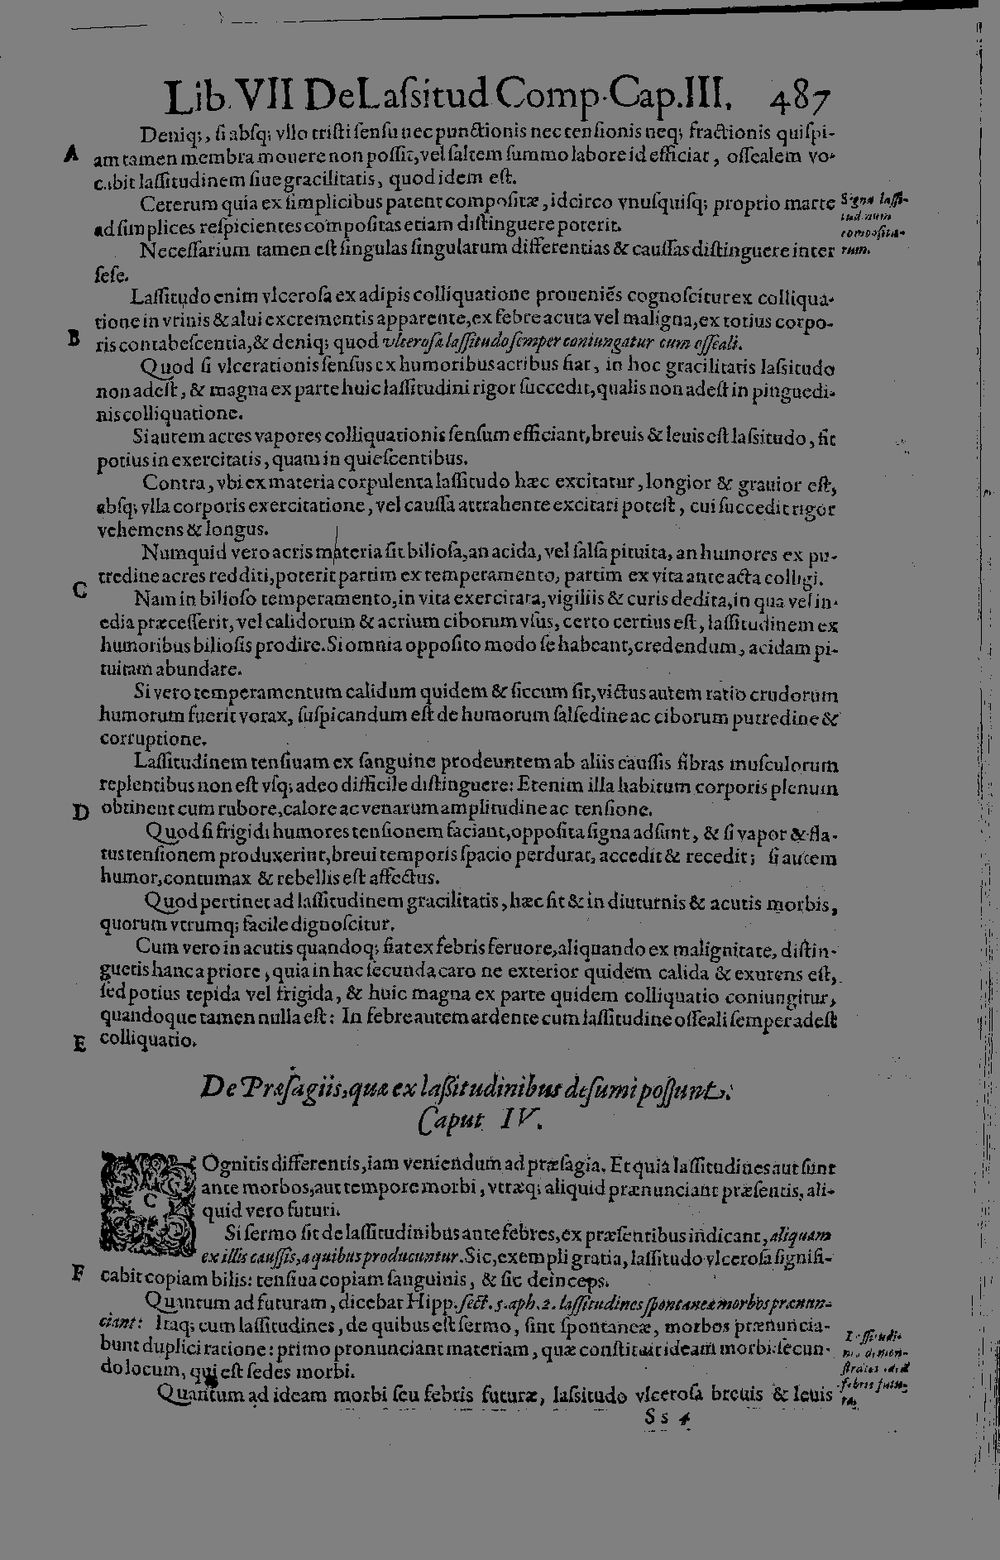 Lib. VII De Laſsitud Comp. Cap. III. 487
Deniq;, ſi abſq; vllo triſti ſenſu nec punctionis nec tenſionis neq; fractionis quiſpi-
A
am tamen membra mouere non poſſit, vel ſaltem ſummo labore id efficiat, oſſealem vo-
cabit laſſitudinem ſiue gracilitatis, quod idem eſt.
Ceterum quia ex ſimplicibus patent compoſitæ, idcirco vnuſquiſq; proprio marte
ad ſimplices reſpiciens compoſitas etiam diſtinguere poterit.
Signa laſſi-
tudinum
compoſita-
rum.
Neceſſarium tamen eſt ſingulas ſingularum differentias & cauſſas diſtinguere inter
ſeſe.
Laſſitudo enim vlceroſa ex adipis colliquatione proueniẽs cognoſcitur ex colliqua-
tione in vrinis & alui excrementis apparente, ex febre acuta vel maligna, ex totius corpo-
B
ris contabeſcentia, & deniq; quod vlceroſa laſſitudo ſemper coniungatur cum oſſeali.
Quod ſi vlcerationis ſenſus ex humoribus acribus fiat, in hoc gracilitatis laſsitudo
non adeſt, & magna ex parte huic laſſitudini rigor ſuccedit, qualis non adeſt in pinguedi-
nis colliquatione.
Si autem acres vapores colliquationis ſenſum efficiant, breuis & leuis eſt laſsitudo, fit
potius in exercitatis, quam in quieſcentibus.
Contra, vbi ex materia corpulenta laſſitudo hæc excitatur, longior & grauior eſt,
abſq; vlla corporis exercitatione, vel cauſſa attrahente excitari poteſt, cui ſuccedit rigor
vehemens & longus.
Numquid vero acris materia ſit bilioſa, an acida, vel ſalſa pituita, an humores ex pu-
tredine acres redditi, poterit partim ex temperamento, partim ex vita ante acta colligi.
C
Nam in bilioſo temperamento, in vita exercitata, vigiliis & curis dedita, in qua vel in-
edia præceſſerit, vel calidorum & acrium ciborum vſus, certo certius eſt, laſſitudinem ex
humoribus bilioſis prodire. Si omnia oppoſito modo ſe habeant, credendum, acidam pi-
tuitam abundare.
Si vero temperamentum calidum quidem & ſiccum ſit, victus autem ratio crudorum
humorum fuerit vorax, ſuſpicandum eſt de humorum ſalſedine ac ciborum putredine &
corruptione.
Laſſitudinem tenſiuam ex ſanguine prodeuntem ab aliis cauſſis fibras muſculorum
replentibus non eſt vſq; adeo difficile diſtinguere: Etenim illa habitum corporis plenum
D
obtinent cum rubore, calore ac venarum amplitudine ac tenſione.
Quod ſi frigidi humores tenſionem faciant, oppoſita ſigna adſunt, & ſi vapor & fla-
tus tenſionem produxerint, breui temporis ſpacio perdurat, accedit & recedit; ſi autem
humor, contumax & rebellis eſt affectus.
Quod pertinet ad laſſitudinem gracilitatis, hæc fit & in diuturnis & acutis morbis,
quorum vtrumq; facile dignoſcitur.
Cum vero in acutis quandoq; fiat ex febris feruore, aliquando ex malignitate, diſtin-
guetis hanc a priore, quia in hac ſecunda caro ne exterior quidem calida & exurens eſt,
ſed potius tepida vel frigida, & huic magna ex parte quidem colliquatio coniungitur,
quandoque tamen nulla eſt: In febre autem ardente cum laſſitudine oſſeali ſemper adeſt
E
colliquatio.
De Præſagiis, quæ ex laſſitudinibus deſumi poſſunt.
Caput IV.
COgnitis differentis, iam veniendum ad præſagia. Et quia laſſitudines aut ſunt
ante morbos, aut tempore morbi, vtræq; aliquid prænunciant præſentis, ali-
quid vero futuri.
Si ſermo ſit de laſſitudinibus ante febres, ex præſentibus indicant, aliquam
ex illis cauſſis, a quibus producuntur. Sic, exempli gratia, laſſitudo vlceroſa ſignifi-
F
cabit copiam bilis: tenſiua copiam ſanguinis, & ſic deinceps.
Quantum ad futuram, dicebat Hipp. ſect. 5. aph. 2. laſſitudines ſpontaneæ morbos prænun-
ciant: Itaq; cum laſſitudines, de quibus eſt ſermo, ſint ſpontaneæ, morbos prænuncia-
bunt duplici ratione: primo pronunciant materiam, quæ conſtituit ideam morbi: ſecun-
do locum, qui eſt ſedes morbi.
Quantum ad ideam morbi ſeu febris futuræ, laſsitudo vlceroſa breuis & leuis
febris futu-
ræ,
Ss 4